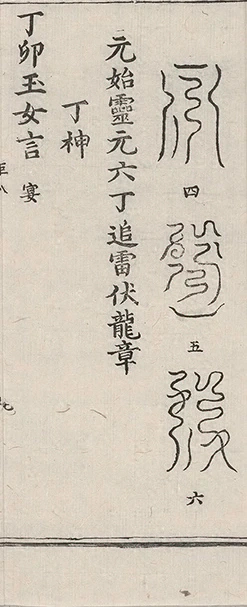 四
五
六
元始靈元六丁追雷伏龍章
丁神
丁卯玉女言 宴